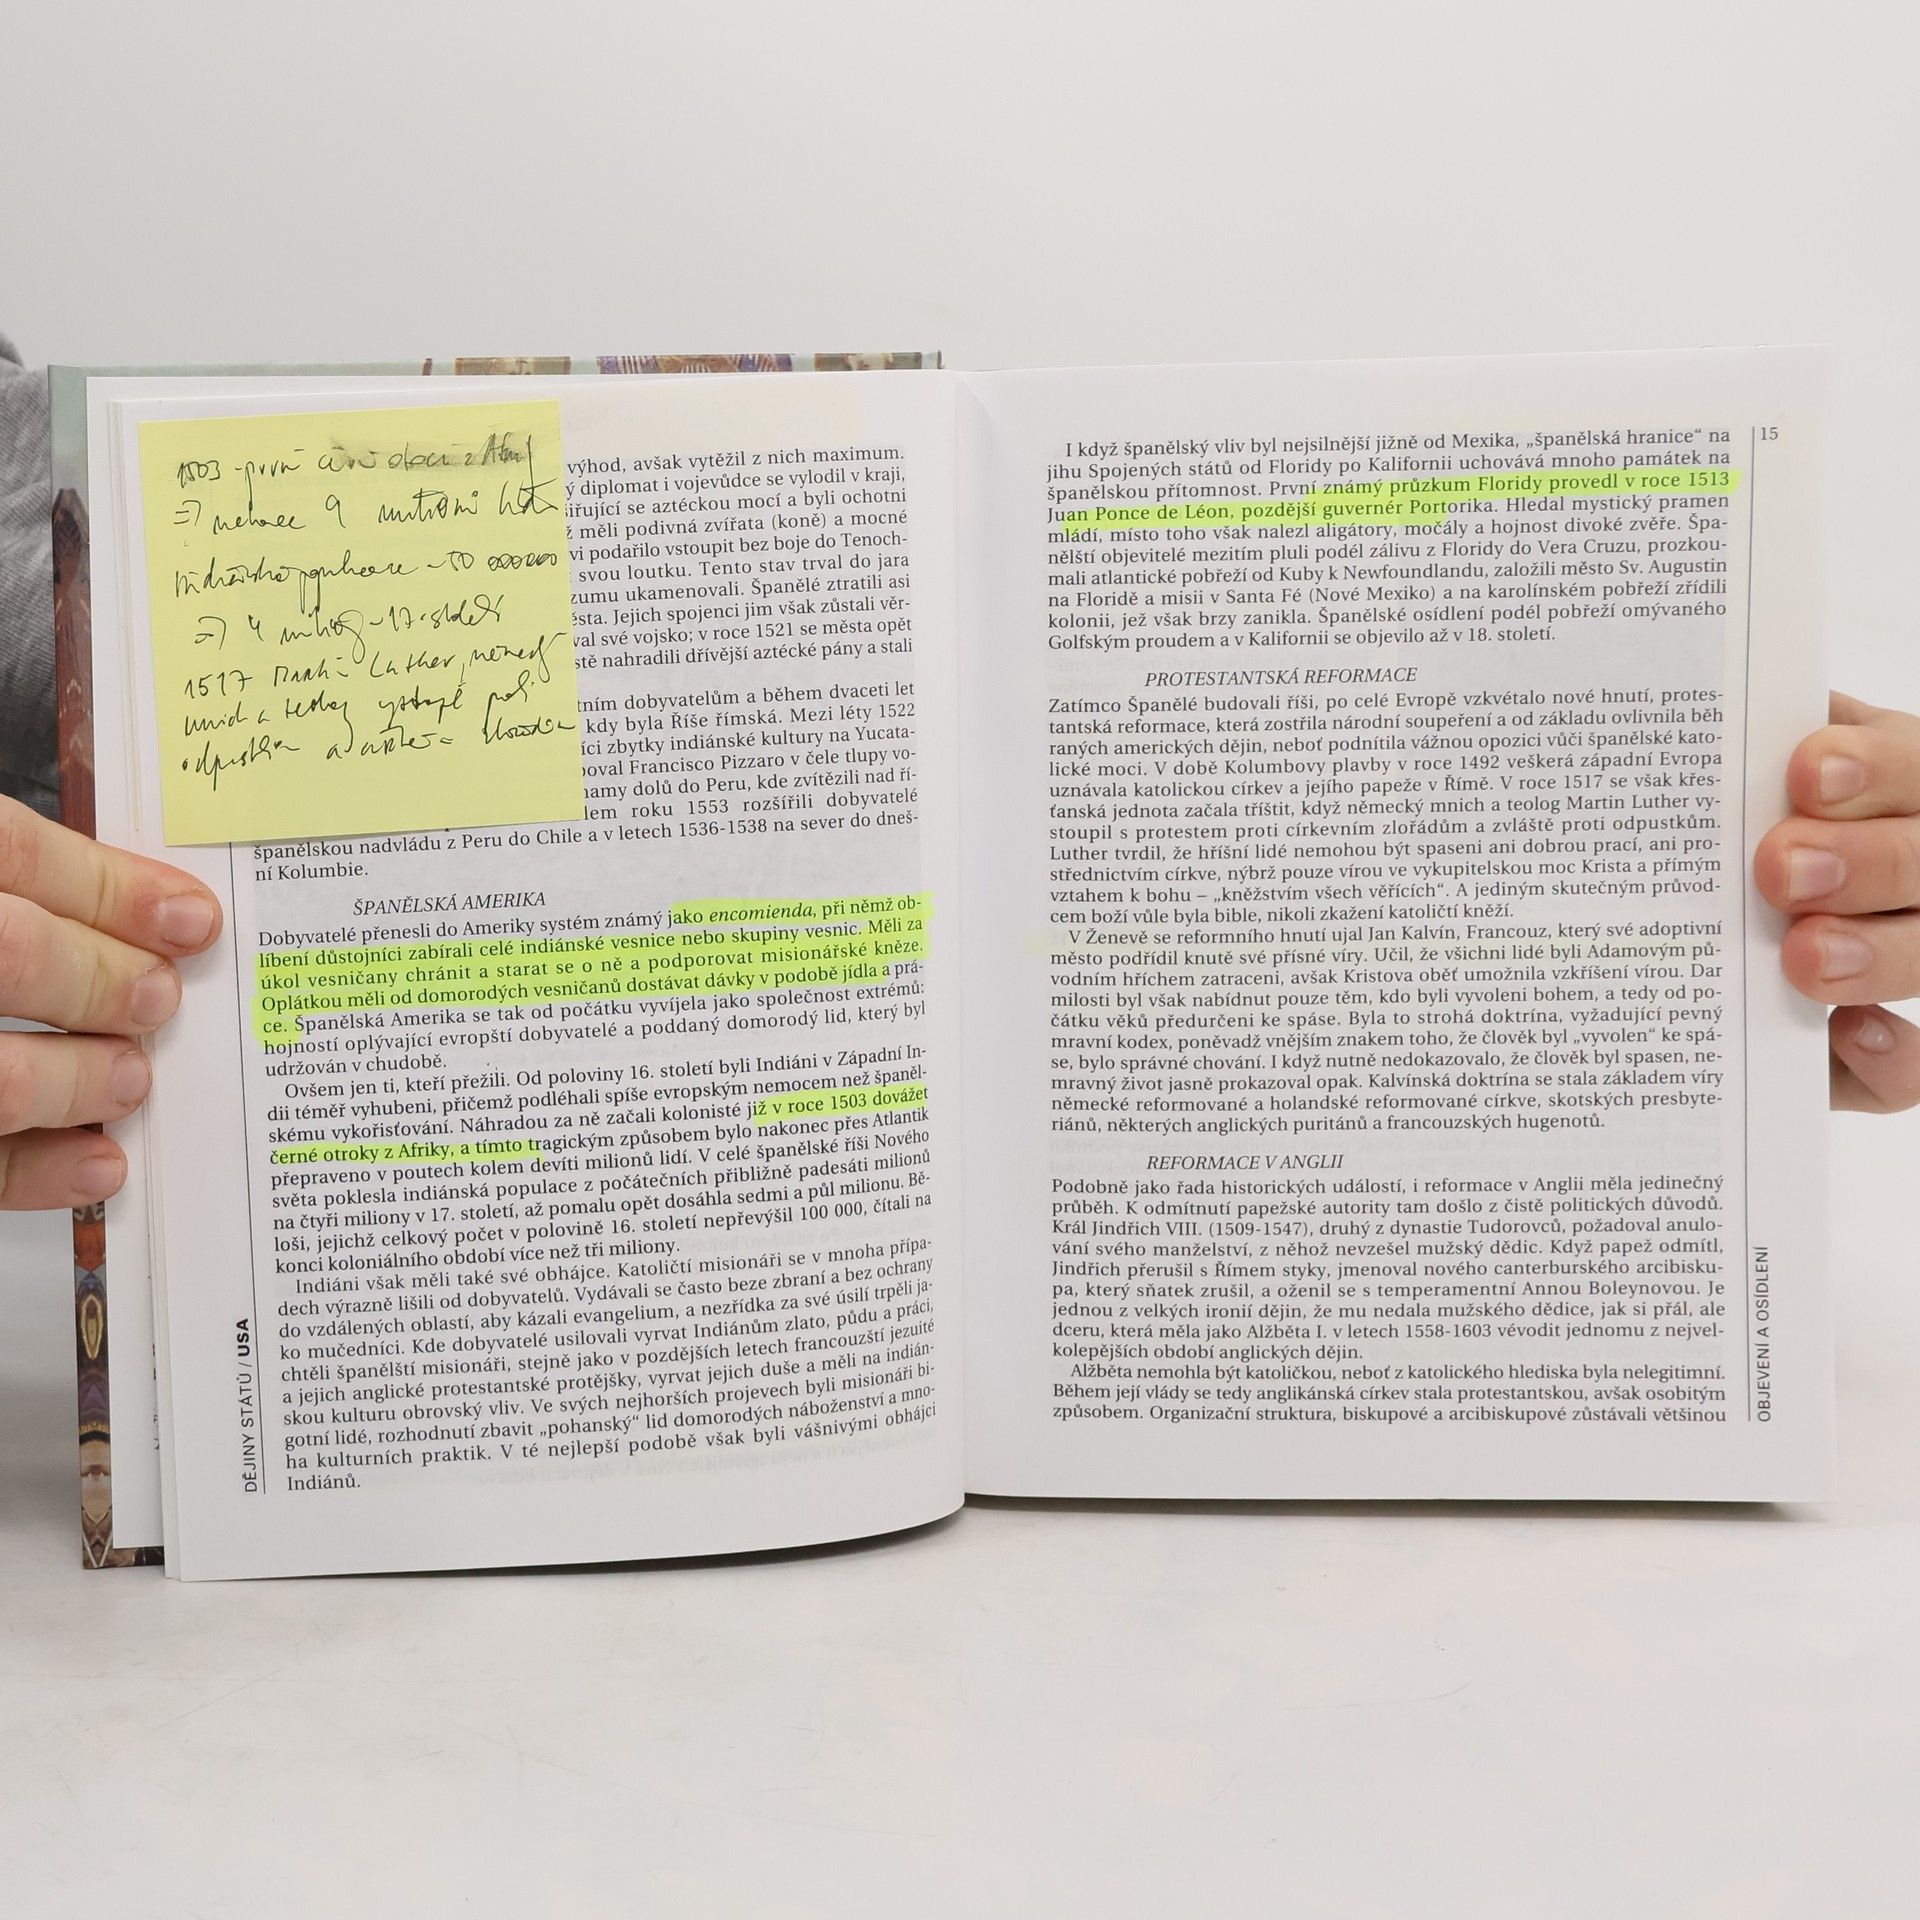 1503 - první
=> nakonec 9 milionů lidí
populace ~ 50 000 000
=> 4 miliony ~ 17. století
1517 Martin Luther, německý
mnich a teolog vystoupil proti
odpustkům a
výhod, avšak vytěžil z nich maximum.
ý diplomat i vojevůdce se vylodil v kraji,
iřující se aztéckou mocí a byli ochotni
ž měli podivná zvířata (koně) a mocné
vi podařilo vstoupit bez boje do Tenoch-
svou loutku. Tento stav trval do jara
zumu ukamenovali. Španělé ztratili asi
ěsta. Jejich spojenci jim však zůstali věr-
val své vojsko; v roce 1521 se města opět
stě nahradili dřívější aztécké pány a stali
tním dobyvatelům a během dvaceti let
kdy byla Říše římská. Mezi léty 1522
íci zbytky indiánské kultury na Yucata-
oval Francisco Pizzaro v čele tlupy vo-
namy dolů do Peru, kde zvítězili nad ří-
lem roku 1553 rozšířili dobyvatelé
španělskou nadvládu z Peru do Chile a v letech 1536-1538 na sever do dneš-
ní Kolumbie.
ŠPANĚLSKÁ AMERIKA
Dobyvatelé přenesli do Ameriky systém známý jako encomienda, při němž ob-
líbení důstojníci zabírali celé indiánské vesnice nebo skupiny vesnic. Měli za
úkol vesničany chránit a starat se o ně a podporovat misionářské kněze.
Oplátkou měli od domorodých vesničanů dostávat dávky v podobě jídla a prá-
ce. Španělská Amerika se tak od počátku vyvíjela jako společnost extrémů:
hojností oplývající evropští dobyvatelé a poddaný domorodý lid, který byl
udržován v chudobě.
Ovšem jen ti, kteří přežili. Od poloviny 16. století byli Indiáni v Západní In-
dii téměř vyhubeni, přičemž podléhali spíše evropským nemocem než španěl-
skému vykořisťování. Náhradou za ně začali kolonisté již v roce 1503 dovážet
černé otroky z Afriky, a tímto tragickým způsobem bylo nakonec přes Atlantik
přepraveno v poutech kolem devíti milionů lidí. V celé španělské říši Nového
světa poklesla indiánská populace z počátečních přibližně padesáti milionů
na čtyři miliony v 17. století, až pomalu opět dosáhla sedmi a půl milionu. Bě-
loši, jejichž celkový počet v polovině 16. století nepřevýšil 100 000, čítali na
konci koloniálního období více než tři miliony.
Indiáni však měli také své obhájce. Katoličtí misionáři se v mnoha přípa-
dech výrazně lišili od dobyvatelů. Vydávali se často beze zbraní a bez ochrany
do vzdálených oblastí, aby kázali evangelium, a nezřídka za své úsilí trpěli ja-
ko mučedníci. Kde dobyvatelé usilovali vyrvat Indiánům zlato, půdu a práci,
chtěli španělští misionáři, stejně jako v pozdějších letech francouzští jezuité
a jejich anglické protestantské protějšky, vyrvat jejich duše a měli na indián-
skou kulturu obrovský vliv. Ve svých nejhorších projevech byli misionáři bi-
gotní lidé, rozhodnutí zbavit „pohanský“ lid domorodých náboženství a mno-
ha kulturních praktik. V té nejlepší podobě však byli vášnivými obhájci
Indiánů.
DĚJINY STÁTŮ / USA
15
I když španělský vliv byl nejsilnější jižně od Mexika, „španělská hranice“ na
jihu Spojených států od Floridy po Kalifornii uchovává mnoho památek na
španělskou přítomnost. První známý průzkum Floridy provedl v roce 1513
Juan Ponce de Léon, pozdější guvernér Portorika. Hledal mystický pramen
mládí, místo toho však nalezl aligátory, močály a hojnost divoké zvěře. Špa-
nělští objevitelé mezitím pluli podél zálivu z Floridy do Vera Cruzu, prozkou-
mali atlantické pobřeží od Kuby k Newfoundlandu, založili město Sv. Augustin
na Floridě a misii v Santa Fé (Nové Mexiko) a na karolínském pobřeží zřídili
kolonii, jež však brzy zanikla. Španělské osídlení podél pobřeží omývaného
Golfským proudem a v Kalifornii se objevilo až v 18. století.
PROTESTANTSKÁ REFORMACE
Zatímco Španělé budovali říši, po celé Evropě vzkvétalo nové hnutí, protes-
tantská reformace, která zostřila národní soupeření a od základu ovlivnila běh
raných amerických dějin, neboť podnítila vážnou opozici vůči španělské kato-
lické moci. V době Kolumbovy plavby v roce 1492 veškerá západní Evropa
uznávala katolickou církev a jejího papeže v Římě. V roce 1517 se však křes-
ťanská jednota začala tříštit, když německý mnich a teolog Martin Luther vy-
stoupil s protestem proti církevním zlořádům a zvláště proti odpustkům.
Luther tvrdil, že hříšní lidé nemohou být spaseni ani dobrou prací, ani pro-
střednictvím církve, nýbrž pouze vírou ve vykupitelskou moc Krista a přímým
vztahem k bohu – „kněžstvím všech věřících“. A jediným skutečným průvod-
cem boží vůle byla bible, nikoli zkažení katoličtí kněží.
V Ženevě se reformního hnutí ujal Jan Kalvín, Francouz, který své adoptivní
město podřídil knutě své přísné víry. Učil, že všichni lidé byli Adamovým pů-
vodním hříchem zatraceni, avšak Kristova oběť umožnila vzkříšení vírou. Dar
milosti byl však nabídnut pouze těm, kdo byli vyvoleni bohem, a tedy od po-
čátku věků předurčeni ke spáse. Byla to strohá doktrína, vyžadující pevný
mravní kodex, poněvadž vnějším znakem toho, že člověk byl „vyvolen“ ke spá-
se, bylo správné chování. I když nutně nedokazovalo, že člověk byl spasen, ne-
mravný život jasně prokazoval opak. Kalvínská doktrína se stala základem víry
německé reformované a holandské reformované církve, skotských presbyte-
riánů, některých anglických puritánů a francouzských hugenotů.
REFORMACE V ANGLII
Podobně jako řada historických událostí, i reformace v Anglii měla jedinečný
průběh. K odmítnutí papežské autority tam došlo z čistě politických důvodů.
Král Jindřich VIII. (1509-1547), druhý z dynastie Tudorovců, požadoval anulo-
vání svého manželství, z něhož nevzešel mužský dědic. Když papež odmítl,
Jindřich přerušil s Římem styky, jmenoval nového canterburského arcibisku-
pa, který sňatek zrušil, a oženil se s temperamentní Annou Boleynovou. Je
jednou z velkých ironií dějin, že mu nedala mužského dědice, jak si přál, ale
dceru, která měla jako Alžběta I. v letech 1558-1603 vévodit jednomu z nejvel-
kolepějších období anglických dějin.
Alžběta nemohla být katoličkou, neboť z katolického hlediska byla nelegitimní.
Během její vlády se tedy anglikánská církev stala protestantskou, avšak osobitým
způsobem. Organizační struktura, biskupové a arcibiskupové zůstávali většinou
OBJEVENÍ A OSÍDLENÍ